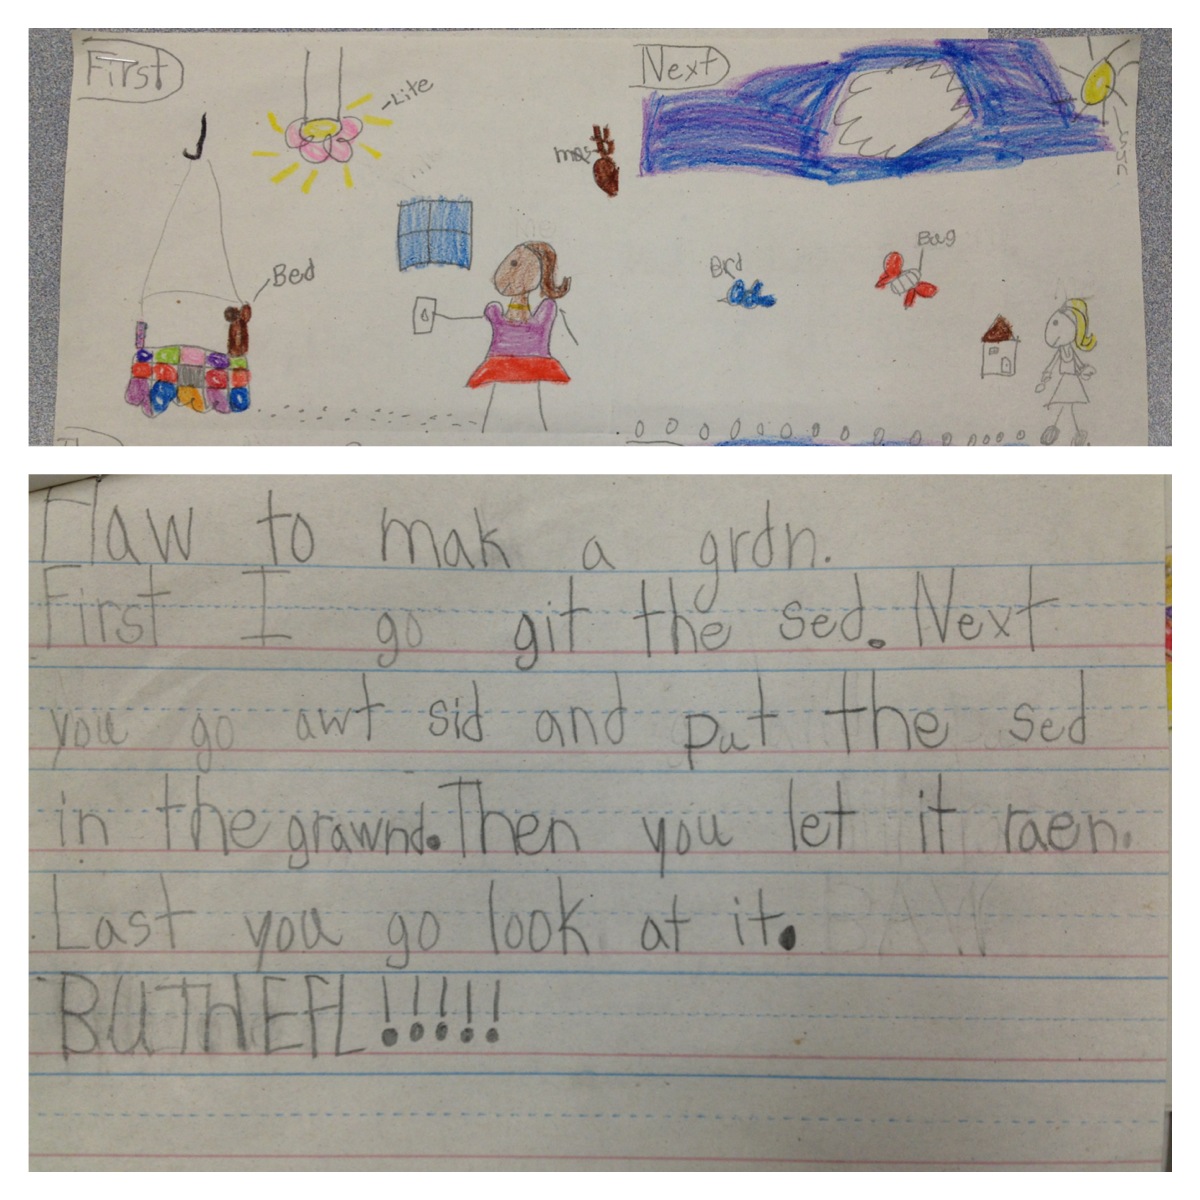 First
Lite
J
mas
Bed
Next
Brd
Bug
Haw to mak a grdn.
First I go git the sed. Next
you go awt sid and put the sed
in the grawnd. Then you let it raen.
Last you go look at it.
BUTHEFL!!!!!